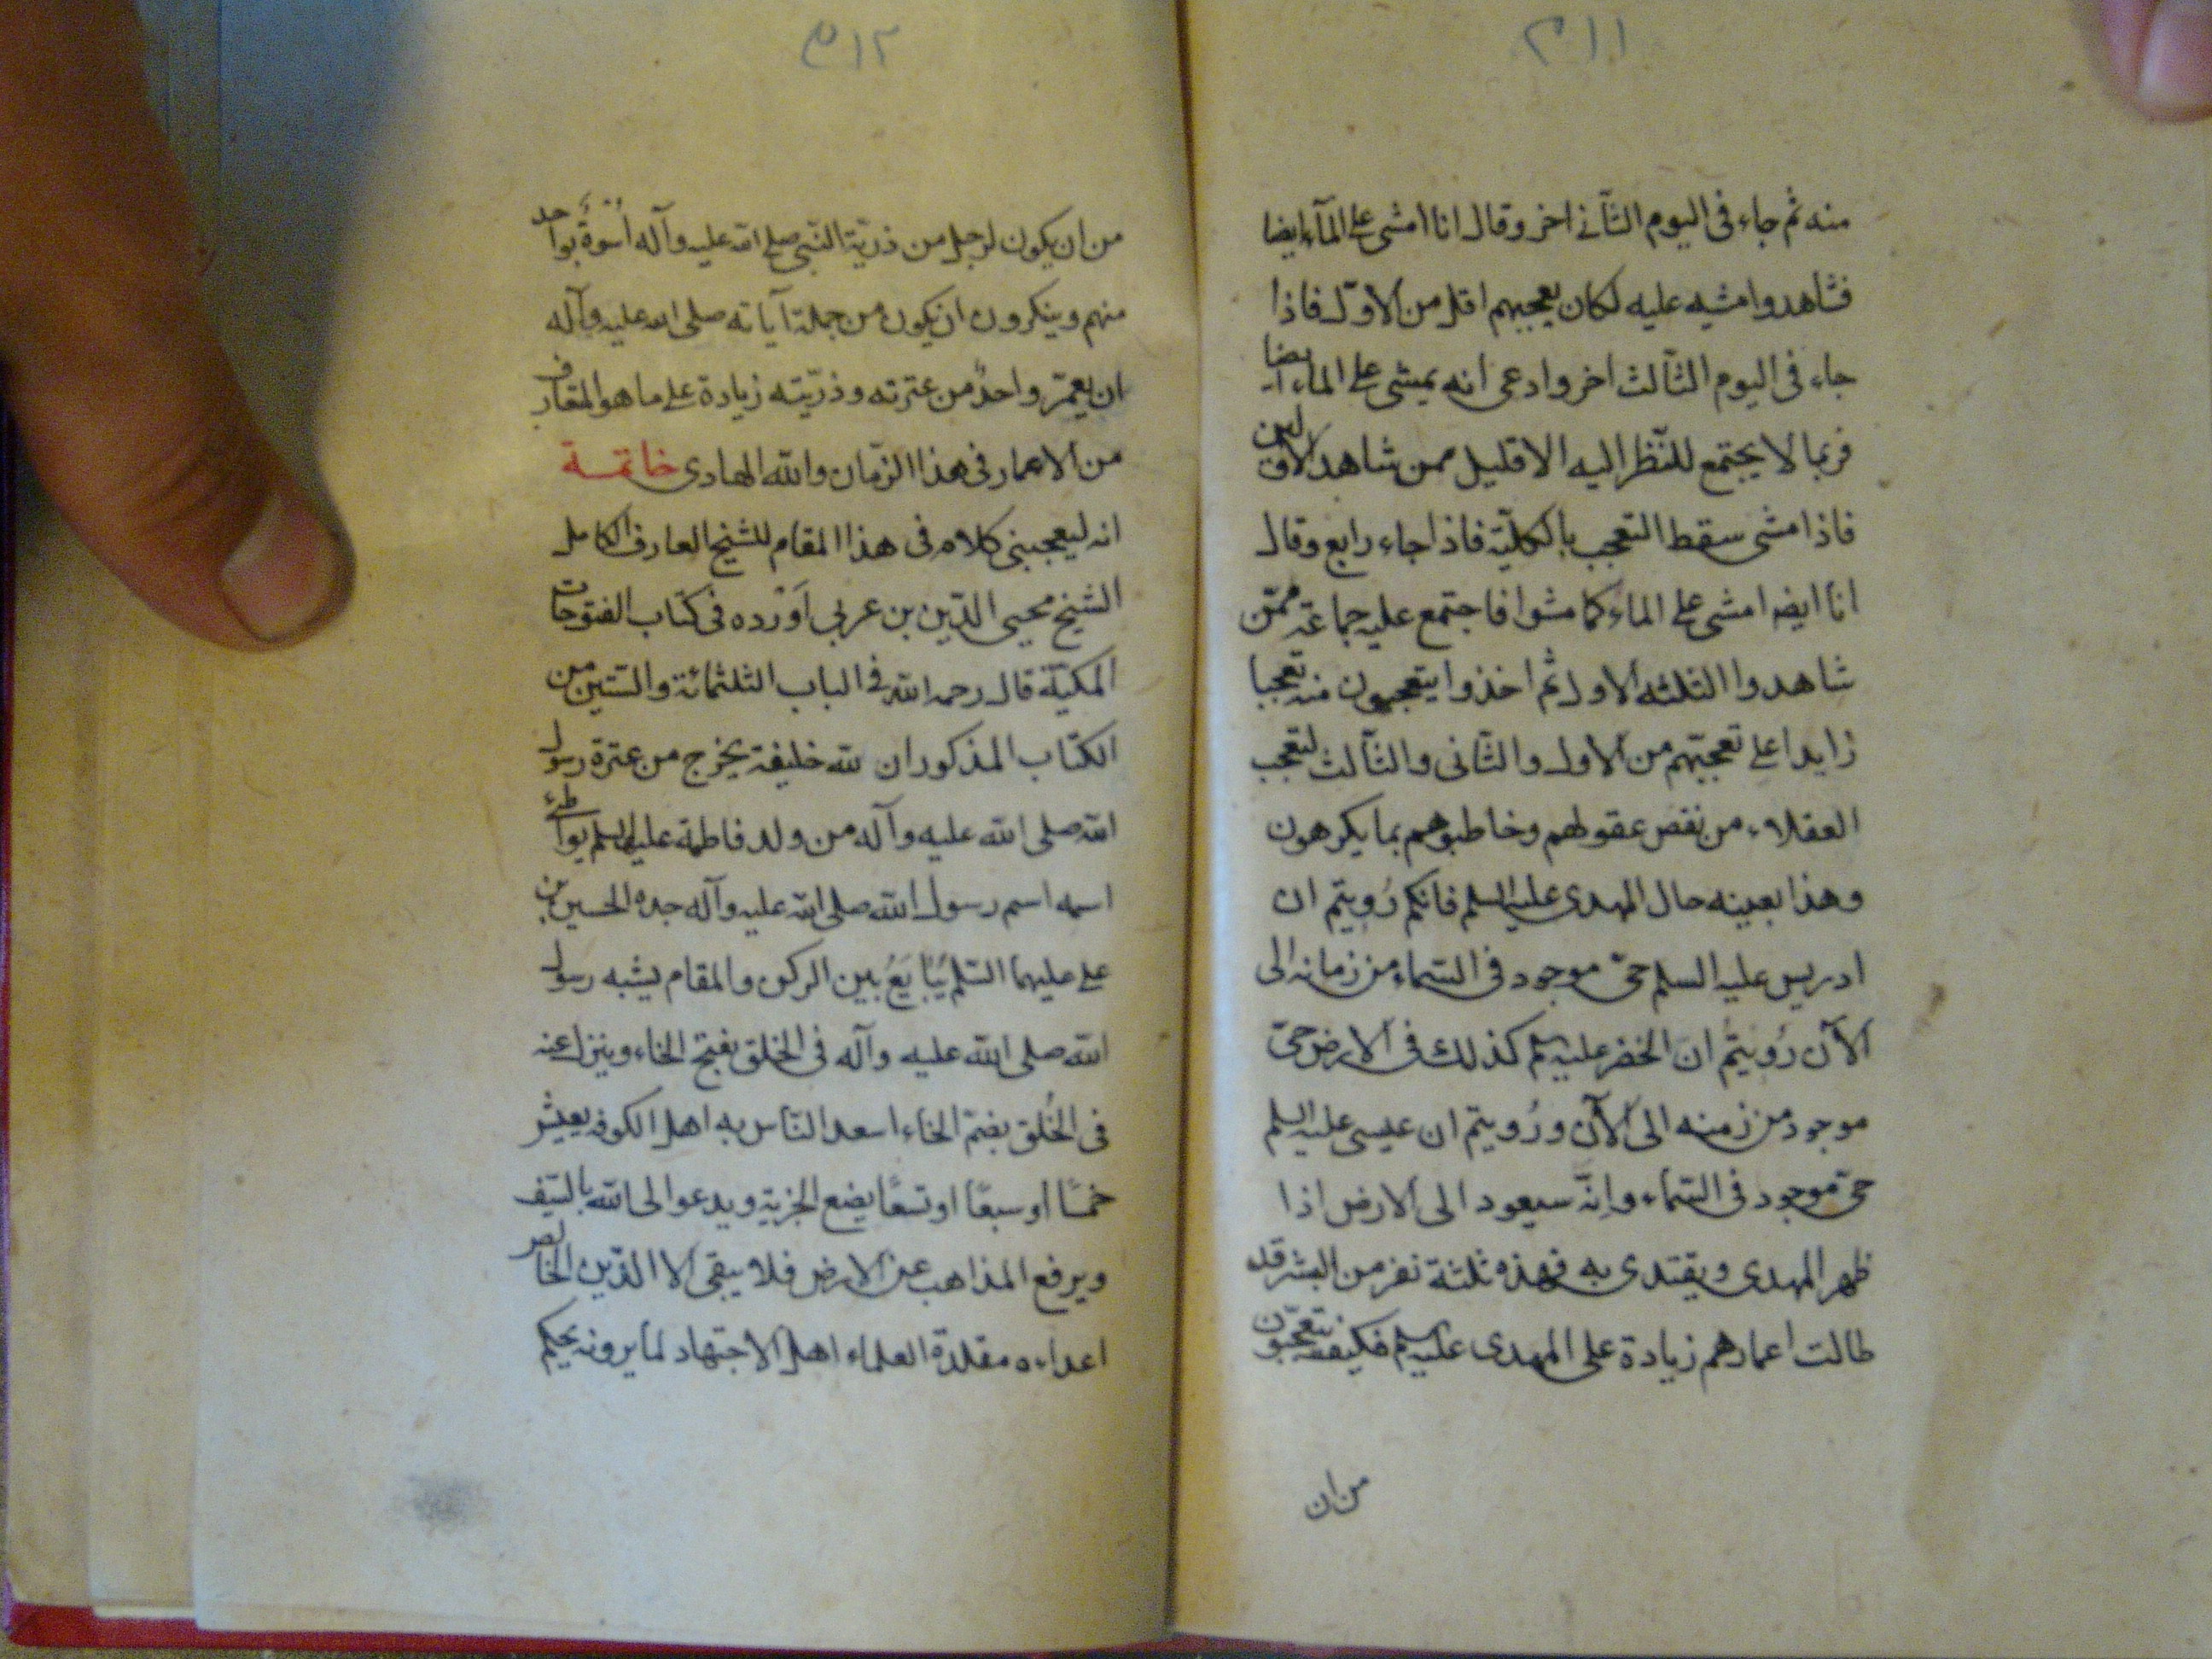 ٣١١
منه ثم جاء فى اليوم الثّانى اخر وقال انا امشى على المآء ايضا
فشاهدوا مشيه عليه لكان يعجبهم اقل من الاوّل فاذا
جاء فى اليوم الثّالث اخر وادعى انه يمشى على الماء ايضا
فربما لا يجتمع للنّظر اليه الا قليل ممن شاهد الاولين
فاذا مشى سقط التعجب بالكليّة فاذا جاء رابع وقال
انا ايضا امشى على الماء كما مشوا فاجتمع عليه جماعة ممّن
شاهدوا الثلثه الاول ثم اخذوا يتعجبون منه تعجبا
زايدا على تعجبّهم من الاول والثّانى والثّالث لتعجب
العقلاء من نقص عقولهم وخاطبوهم بما يكرهون
وهذا بعينه حال المهدى عليه السلم فانكم رُويتم ان
ادريس عليه السلم حىّ موجود فى السّماء من زمانه الى
الآن رُويتم ان الخضر عليه سلم كذلك فى الارض حىّ
موجود من زمنه الى الآن ورُويتم ان عيسى عليه السلم
حىّ موجود فى السّماء وانّه سيعود الى الارض اذا
ظهر المهدى ويقتدى به فهذه ثلثة نفر من البشر قد
طالت اعمارهم زيادة على المهدى عليه سلم فكيف تتعجّبون
من ان
٣١٢
من ان يكون لرجل من ذريّة النّبى صلى الله عليه وآله أُسْوَةٌ بواحد
منهم وينكرون ان يكون من جملة آياته صلى الله عليه وآله
ان يعمّر واحدٌ من عترته وذرّيّته زيادة على ما هو المتعارف
من الاعمار فى هذا الزّمان والله الهادى خاتمة
انه ليعجبنى كلام فى هذا المقام للشيخ العارف الكامل
الشيخ محيى الدّين بن عربى اَوْرده فى كتاب الفتوحات
المكيّة قال رحمه الله فى الباب الثلثمائة والستّين من
الكتاب المذكور ان لله خليفة يخرج من عترة رسول
الله صلى الله عليه وآله من ولد فاطمة عليها السلم يواطئ
اسمه اسم رسول الله صلى الله عليه وآله جده الحسين بن
على عليهما السّلم يُبَايَعُ بين الركن والمقام يشبه رسول
الله صلى الله عليه وآله فى الخلق بفتح الخاء وينزل عنه
فى الخُلق بضم الخاء اسعد النّاس به اهل الكوفه يعيش
خمسًا او سبعًا او تسعًا يضع الجزية ويدعو الى الله بالسّيف
ويرفع المذاهب عن الارض فلا يبقى الا الدّين الخالص
اعداءه مقلدة العلماء اهل الاجتهاد لما يرونه يحكم